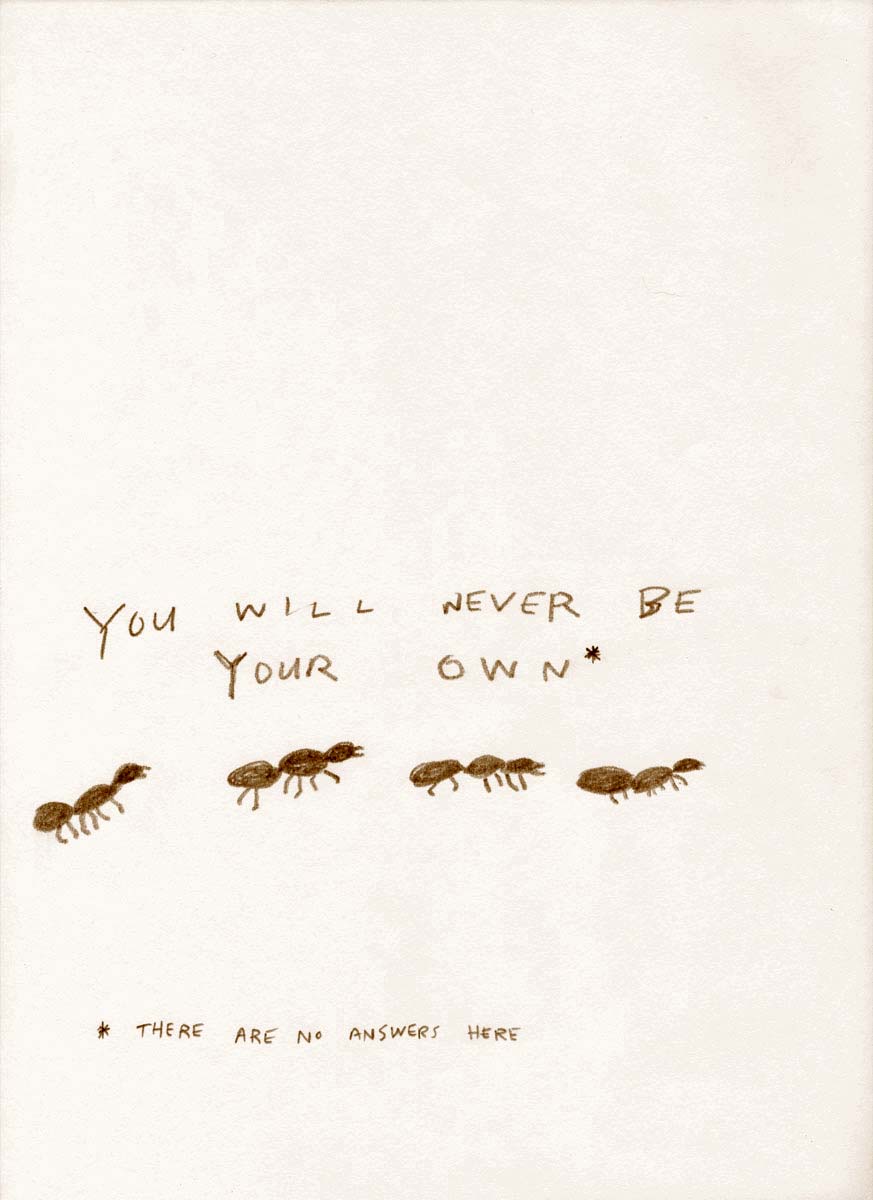 YOU WILL NEVER BE
YOUR OWN*
* THERE ARE NO ANSWERS HERE